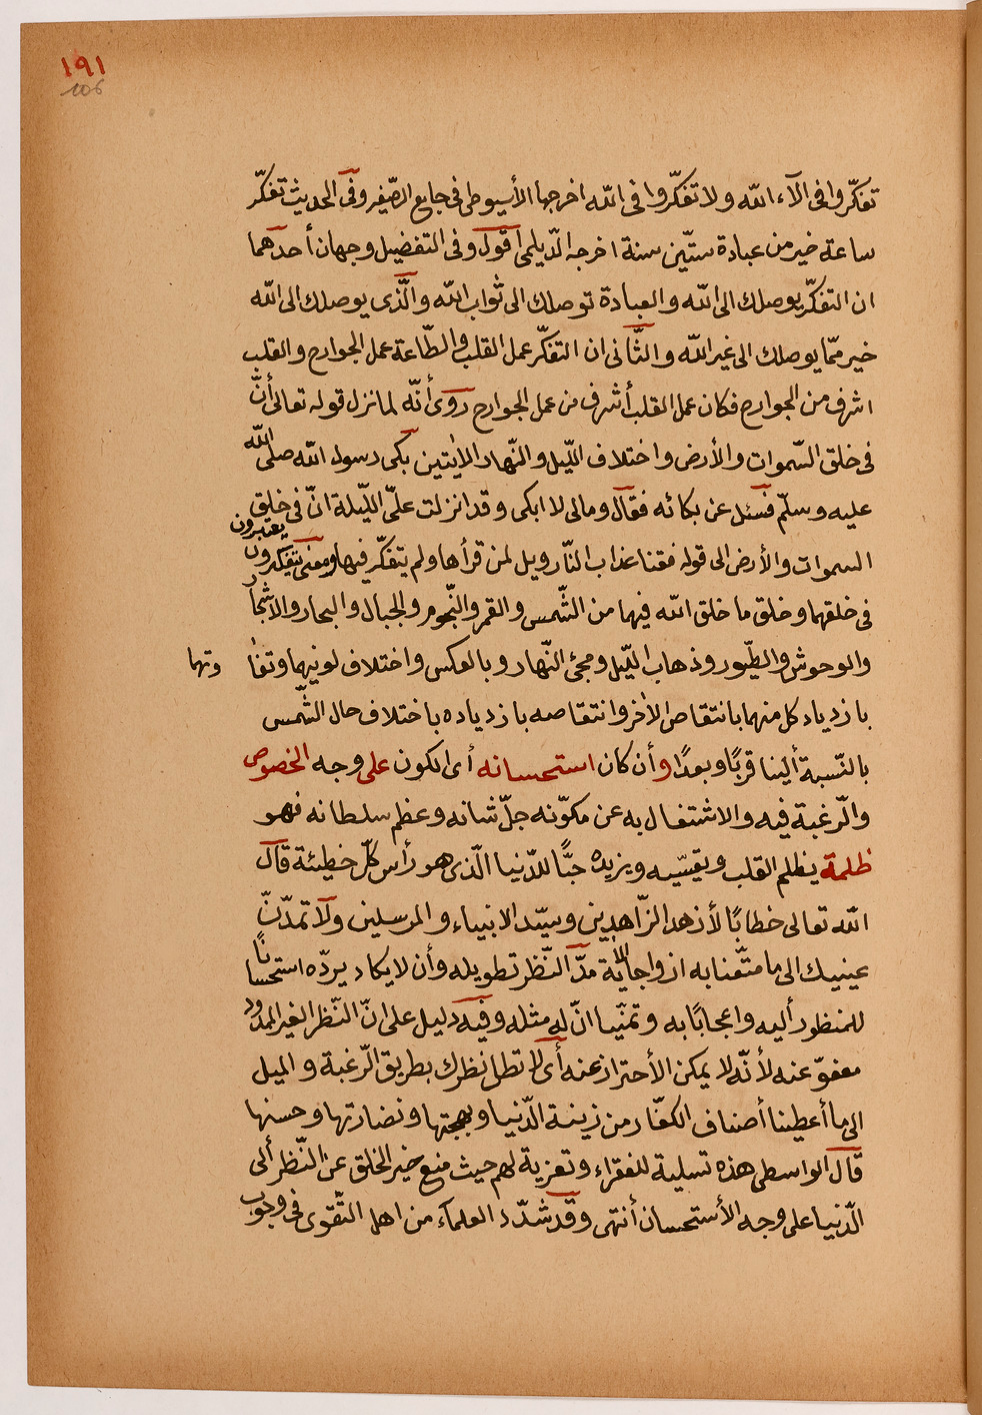 ١٩١
106
تفكّروا فى الآء الله ولا تفكّروا فى الله اخرجها الأسيوطى فى جامع الصّغير وفى الحديث تفكّر
ساعة خير من عبادة ستّين سنة اخرجه الدّيلمى اقول وفى التفضيل وجهان أحدهما
ان التفكّر يوصلك الى الله والعبادة توصلك الى ثواب الله والّذى يوصلك الى الله
خير ممّا يوصلك الى غير الله والثّانى ان التفكّر عمل القلب والطّاعة عمل الجوارح والقلب
اشرف من الجوارح فكان عمل القلب أشرف من عمل الجوارح روى أنّه لما نزل قوله تعالى أنّ
فى خلق السّموات والأرض واختلاف اللّيل والنّهار الأيتين بكى رسول الله صلى الله
عليه وسلّم فسئل عن بكائه فقال ومالى لا ابكى وقد انزلت علىّ اللّيلة انّ فى خلق
السموات والأرض الى قوله فقنا عذاب النّار ويل لمن قرأها ولم يتفكّر فيها ومعنى يتفكرون يعتبرون
فى خلقهما وخلق ما خلق الله فيهما من الشّمس والقمر والنّجوم والجبال والبحار والاشجار
والوحوش والطّيور وذهاب اللّيل ومجئ النّهار وبالعكس واختلاف لونيهما وتفا وتهما
بازدياد كل منهما بانتقاص الأخر وانتقاصه بازدياده باختلاف حال الشّمس
بالنّسبة ألينا قربًا وبعدًا وأن كان استحسانه أى الكون على وجه الخصوص
والرّغبة فيه والاشتغال به عن مكوّنه جلّ شانه وعظم سلطانه فهو
ظلمة يظلم القلب ويقسّيه ويزيده حبًّا للدّنيا الّذى هو رأس كلّ خطيئة قال
الله تعالى خطابًا لأزهد الزّاهدين وسيّد الانبياء والمرسلين ولا تمدّنّ
عينيك الى ما متّعنا به ازواجا الأية مدّ النّظر تطويله وأن لا يكاد يردّه استحسانًا
للمنظور أليه واعجابًا به وتمنّيا انّ له مثله وفيه دليل على انّ النّظر الغير الممدود
معفوّ عنه لأنّه لا يمكن الأحتراز عنه أى لا تطل نظرك بطريق الرّغبة والميل
الى ما أعطينا أصناف الكفّار من زينة الدّنيا وبهجتها ونضارتها وحسنها
قال الواسطى هذه تسلية للفقراء وتعزية لهم حيث منع خير الخلق عن النّظر ألى
الدّنيا على وجه الأستحسان أنتهى وقد شدّد العلماء من اهل التّقوى فى وجوب